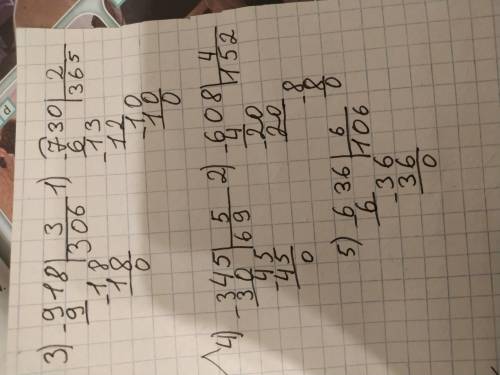 1) -730 | 2
6 | 365
-13
12
-10
10
0
2) -608 | 4
4 | 152
-20
20
-8
8
0
3) -918 | 3
9 | 306
-18
18
0
4) -345 | 5
30 | 69
-45
45
0
5) -636 | 6
6 | 106
-36
36
0